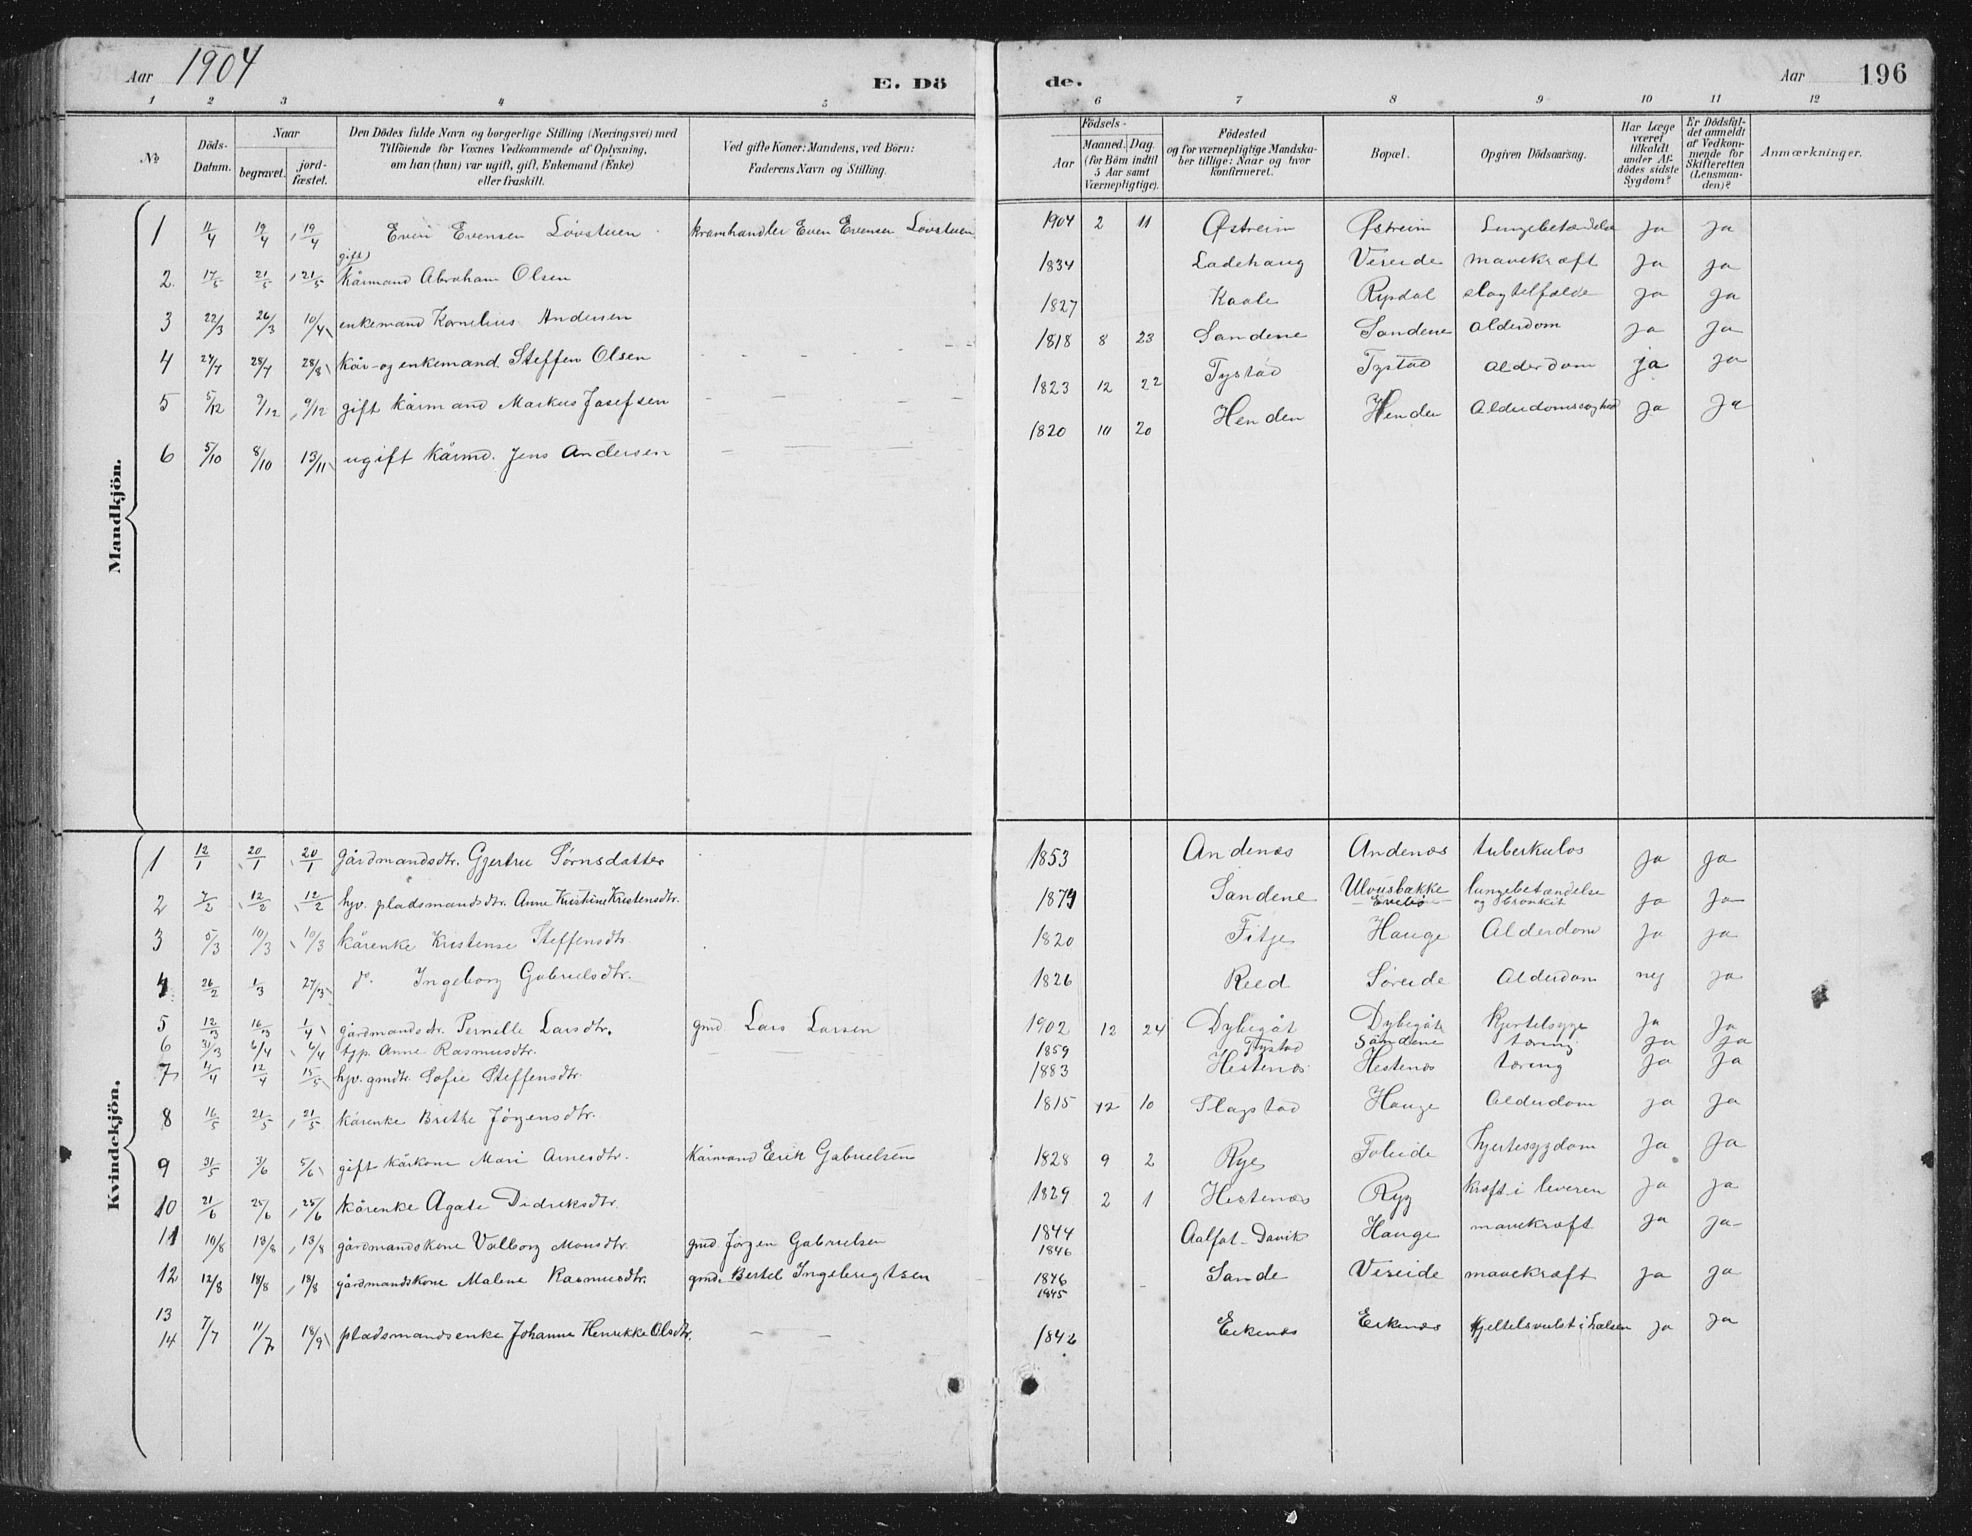 Aar 1904 E. Dö de. Aar 196
1 2 3 4 5 6 7 8 9 10 11 12
No Döds-Datum. Naar begravet. jord-fæstet. Den Dödes fulde Navn og borgerlige Stilling (Næringsvei) med Tilföiende for Voxnes Vedkommende af Oplysning, om han (hun) var ugift, gift, Enkemand (Enke) eller fraskilt. Ved gifte Koner: Mandens, ved Börn: Faderens Navn og Stilling. Födsels- Aar Maaned. Dag. (for Börn indtil 5 Aar samt Værnepligtige). Födested og for værnepligtige Mandskaber tillige: Naar og hvor konfirmeret. Bopæl. Opgiven Dödsaarsag. Har Læge været tilkaldt under Afdödes sidste Sygdom? Er Dödsfaldet anmeldt af Vedkommende for Skifteretten (Lensmanden)? Anmærkninger.
Mandkjön.
1 11/4 19/4 19/4 Even Evensen Lövstuen kramhandler Even Evensen Lövstuen 1904 2 11 Østreim Østreim Lungebetændelse ja ja
2. 17/5 21/5 21/5 gift kårmand Abraham Olsen 1834 Ladehaug Vereide mavekræft ja ja
3 22/3 26/3 10/4 enkemand Kornelius Andersen 1827 Kaale Rypdal slagtilfælde ja ja
4 24/7 28/7 28/8 kår- og enkemand Steffen Olsen 1818 8 23 Sandene Sandene Alderdom ja ja
5 5/12 9/12 9/12 gift kårmand Markus Josefsen 1823 12 22 Tystad Tystad Alderdom ja ja
6 5/10 8/10 13/11 ugift kårmd. Jens Andersen 1820 10 20 Henden Henden ja ja
Kvindekjön.
1 12/1 20/1 20/1 gårdmandsdtr. Gjertru Sørnsdatter 1853 Andenæs Andenæs tuberkulos ja ja
2 7/2 12/2 12/2 hjv. pladsmandsdtr. Anne Kristine Kristensdtr. 1874 Sandene Evebø lungebetændelse og Bronkit ja ja
3 5/3 10/3 10/3 kårenke Kristense Steffensdtr. 1820 Fitje Hauge Alderdom ja ja
4 26/2 1/3 27/3 do. Ingeborg Gabrielsdtr. 1826 Reed Søreide Alderdom nej ja
5 12/3 16/3 1/4 gårdmandsdtr. Pernille Larsdtr. gmd. Lars Larsen 1902 12 24 Dybegåt Dybegåt kjertelsyge ja ja
6 31/3 6/4 6/4 Anne Rasmusdtr. 1859 Tystad Sandene tæring ja ja
7 4/4 12/4 15/5 hjv. gmdtr. Sofie Steffensdtr. 1883 Hestenæs Hestenæs tæring ja ja
8 16/5 21/5 21/5 kårenke Brithe Jørgensdtr. 1815 12 10 Flagstad Hauge Alderdom ja ja
9 31/5 3/6 5/6 gift kårkone Mari Arnesdtr. Kårmand Erik Gabrielsen 1828 9 2 Rye Foleide hjertesygdom ja ja
10 21/6 25/6 25/6 kårenke Agate Didriksdtr. 1829 2 1 Hestenæs Ryg kræft i leveren ja ja
11 10/8 13/8 13/8 gårdmandskone Valborg Monsdtr. gmd. Jørgen Gabrielsen 1844 1846 Aalfot-Davik Hauge mavekræft ja ja
12 12/8 18/8 18/8 gårdmandskone Malene Rasmusdtr. gmd. Bertel Ingebrigtsen 1846 1845 Sande Vereide mavekræft ja ja
13
14 7/7 11/7 18/9 pladsmandsenke Johanne Henrikke Olsdtr. 1842 Eikenæs Eikenæs kjeltelsvulst i halsen ja ja